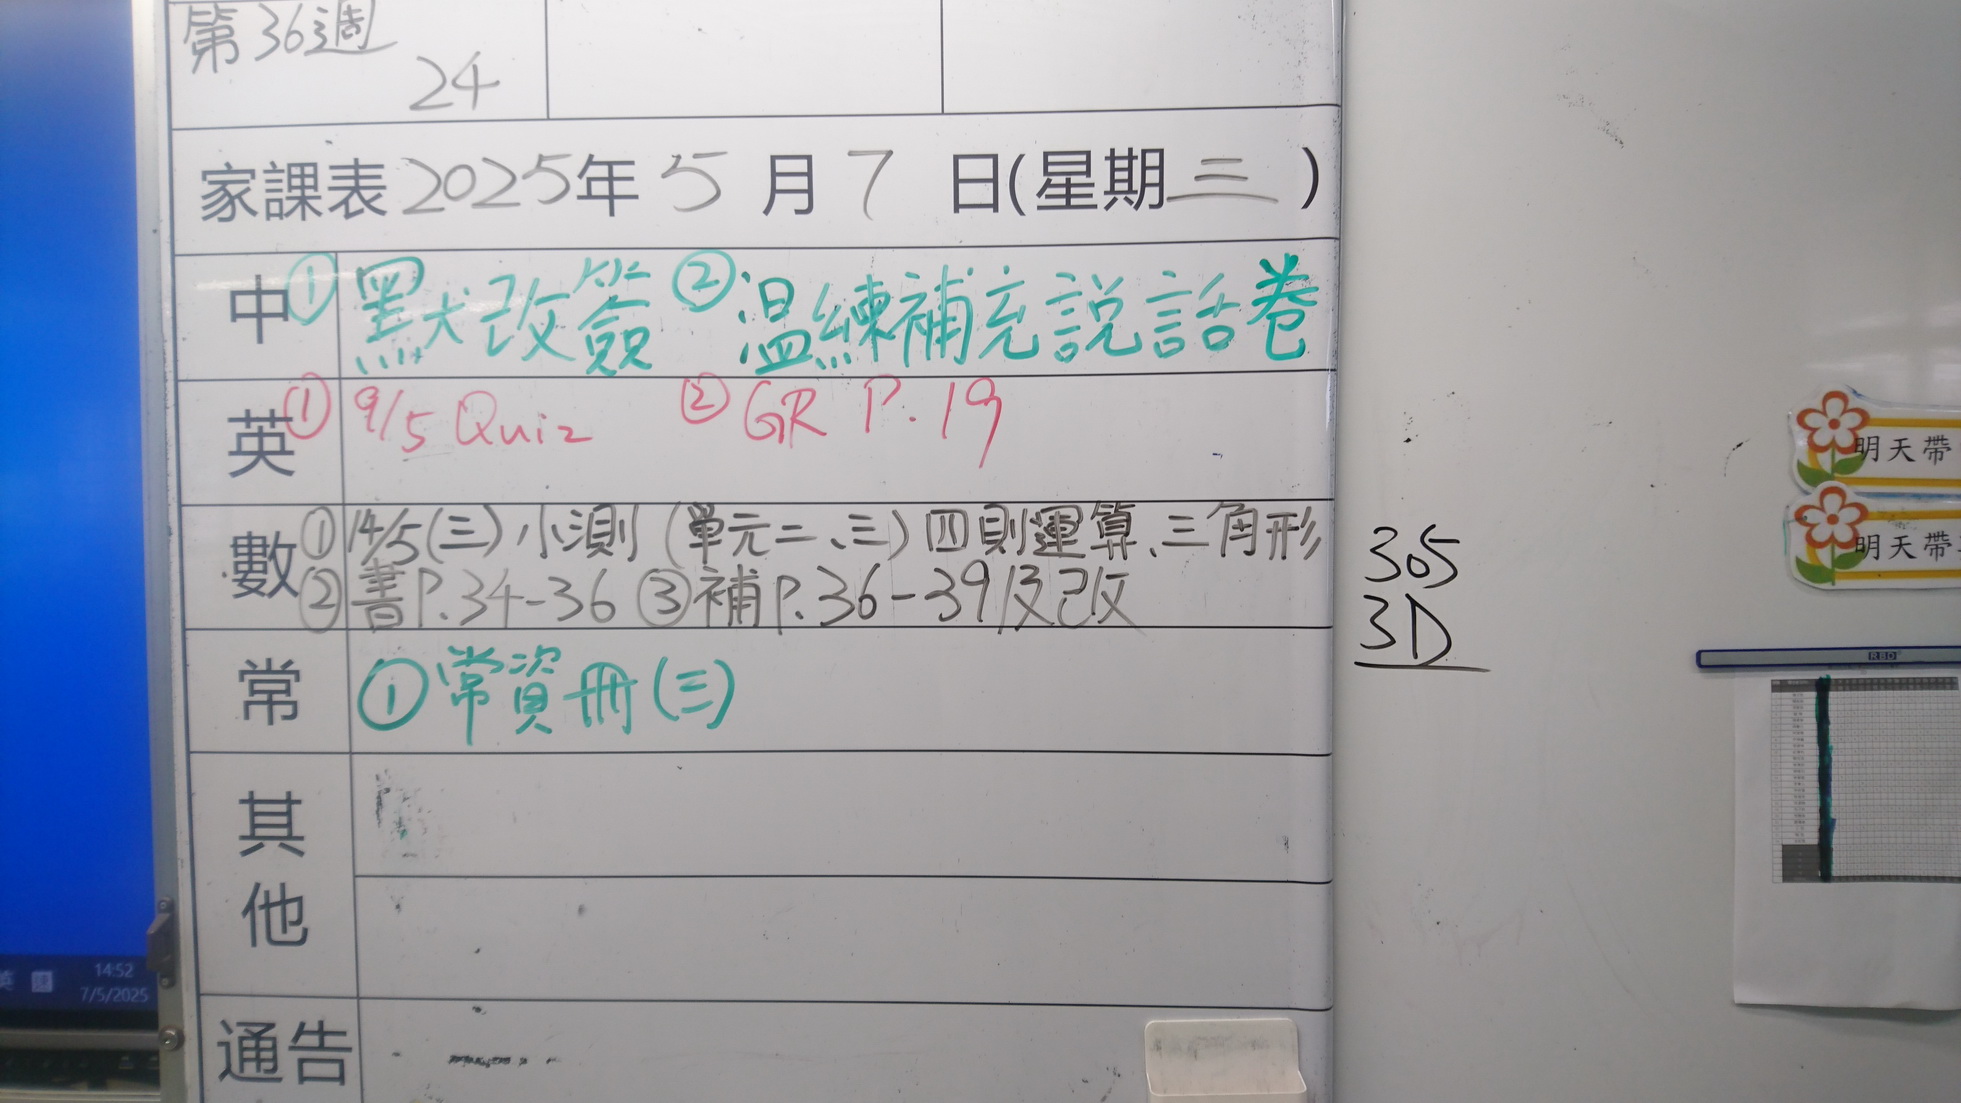 第36週
24
家課表2025年5月7日(星期三)
中 ①默改簽 ②温練補充說話卷
英 ①9/5 Quiz ②GR P.19
數 ①14/5(三)小測(單元二、三)四則運算、三角形
②書P.34-36 ③補P.36-39及改
常 ①常資冊(三)
其他
通告
305
3D
明天帶
明天帶
RBD
英
14:52
7/5/2025